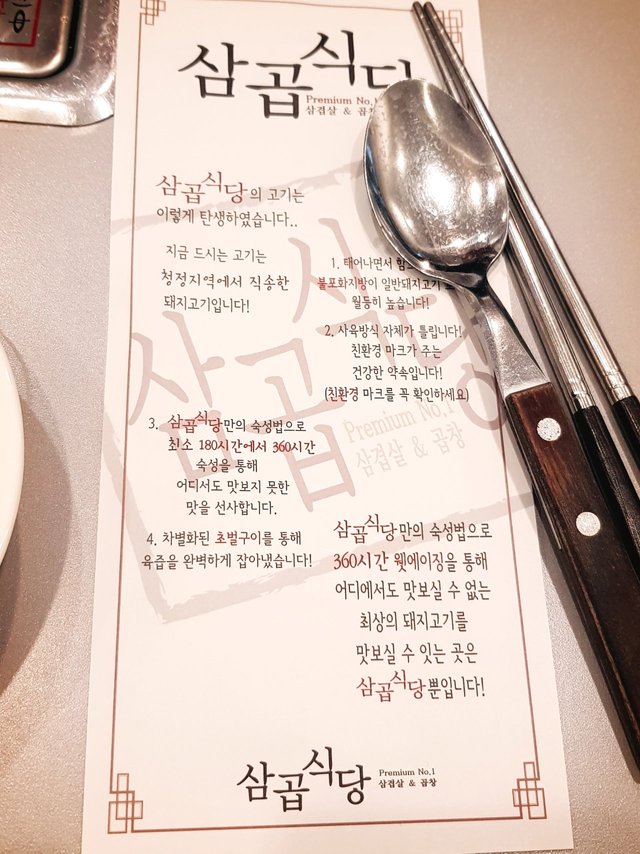 삼곱식당
Premium No.1
삼겹살 & 곱창
삼곱식당의 고기는
이렇게 탄생하였습니다..
지금 드시는 고기는
청정지역에서 직송한
돼지고기입니다!
1. 태어나면서
불포화지방이 일반돼지고기
월등히 높습니다!
2. 사육방식 자체가 틀립니다!
친환경 마크가 주는
건강한 약속입니다!
(친환경 마크를 꼭 확인하세요)
3. 삼곱식당만의 숙성법으로
최소 180시간에서 360시간
숙성을 통해
어디서도 맛보지 못한
맛을 선사합니다.
4. 차별화된 초벌구이를 통해
육즙을 완벽하게 잡아냈습니다!
삼곱식당
Premium No.1
삼겹살 & 곱창
삼곱식당만의 숙성법으로
360시간 웻에이징을 통해
어디에서도 맛보실 수 없는
최상의 돼지고기를
맛보실 수 있는 곳은
삼곱식당뿐입니다!
삼곱식당
Premium No.1
삼겹살 & 곱창